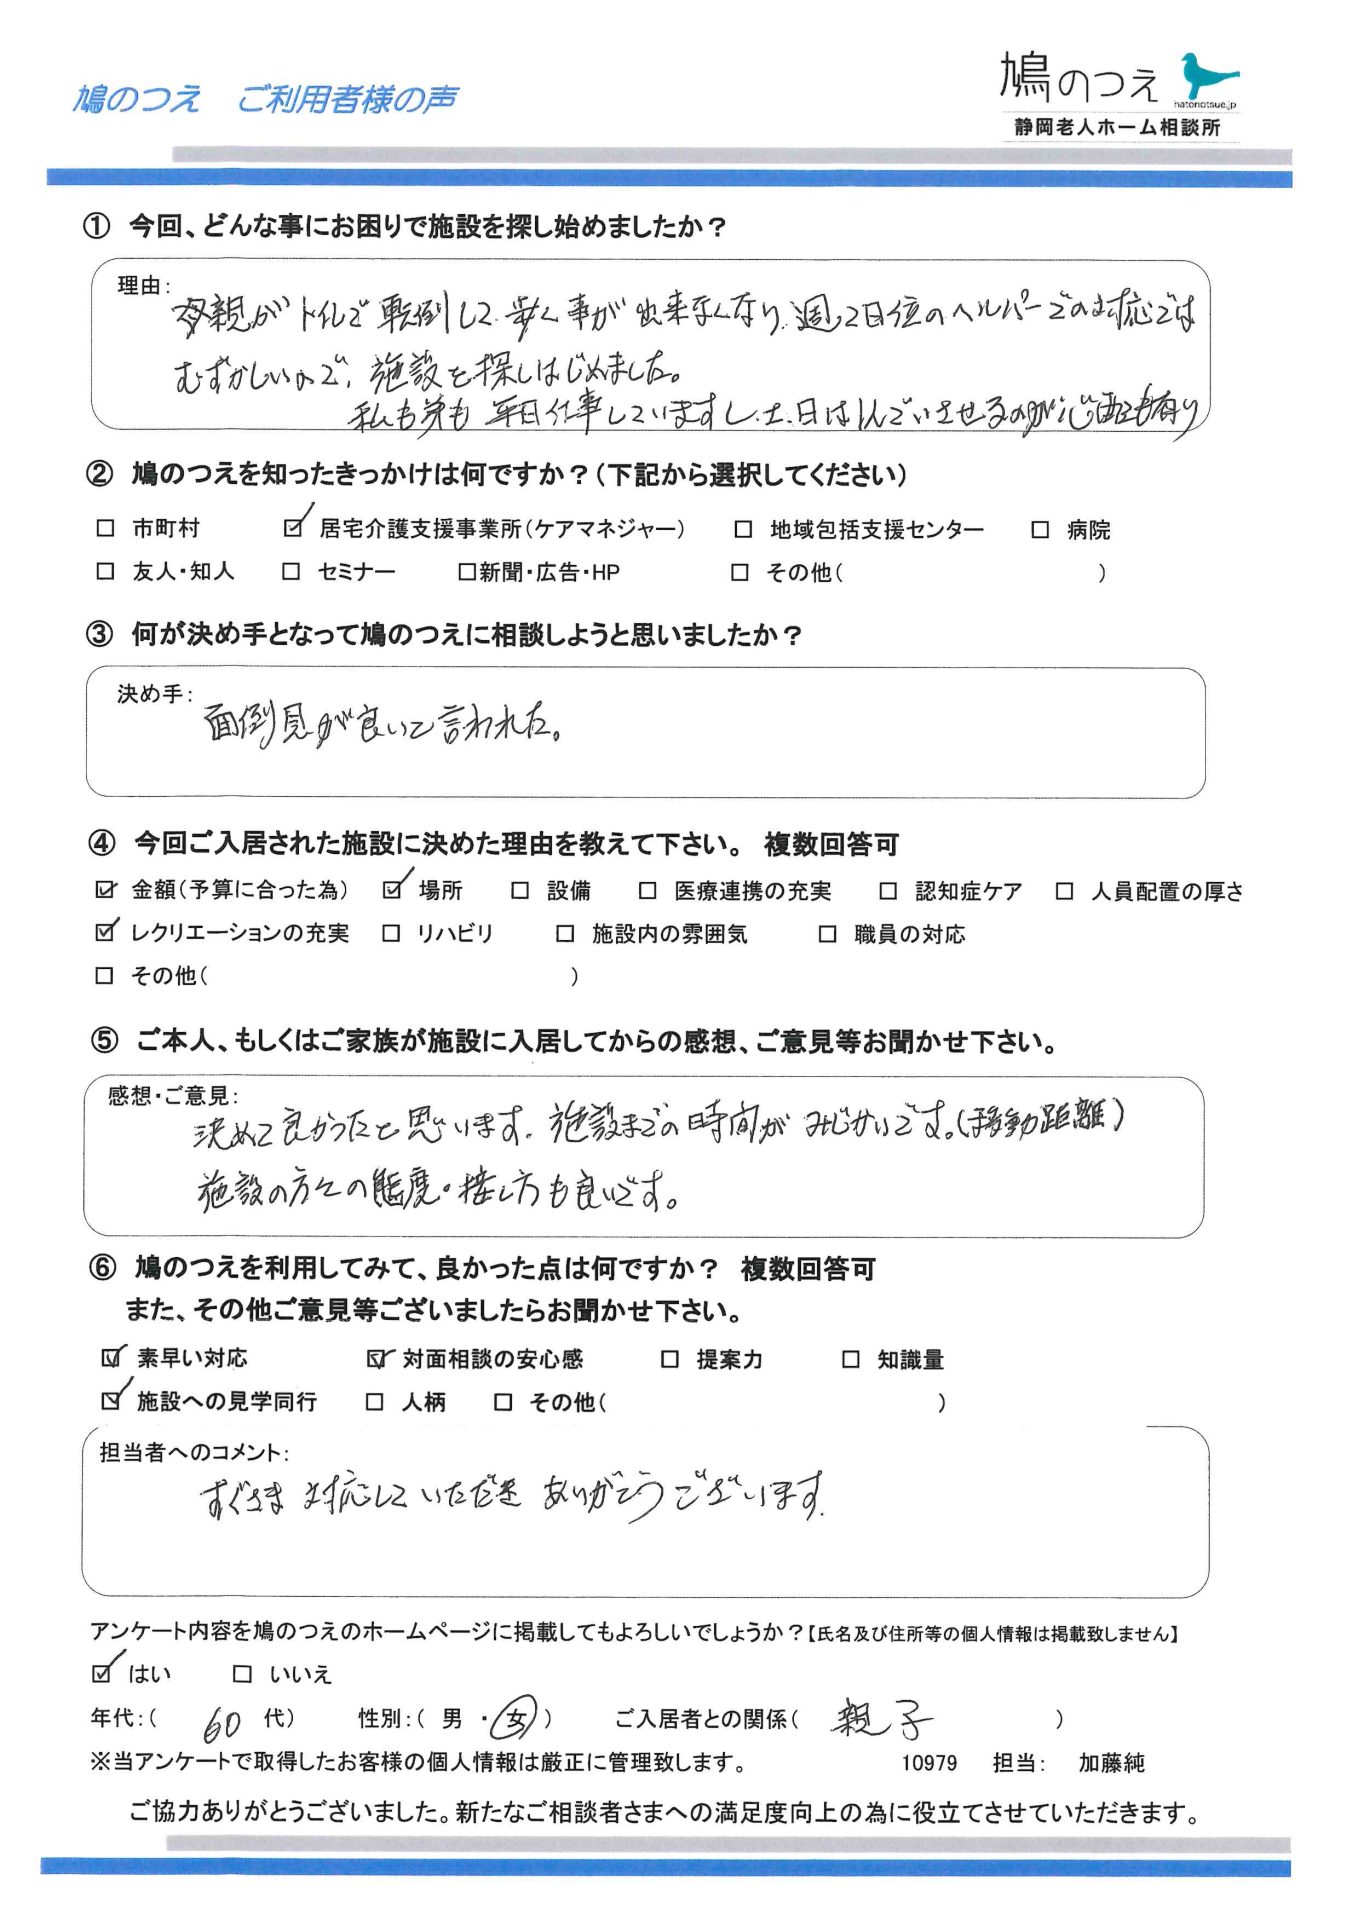 鳩のつえ ご利用者様の声
鳩のつえ
hatonotsue.jp
静岡老人ホーム相談所
① 今回、どんな事にお困りで施設を探し始めましたか？
理由：
母親がトイレで転倒して歩く事が出来なくなり、週2日位のヘルパーでの対応では
むずかしいので、施設を探しはじめました。
私も弟も平日仕事していますし、土、日は休んでいさせるのが心配も有り
② 鳩のつえを知ったきっかけは何ですか？（下記から選択してください）
□ 市町村 ☑ 居宅介護支援事業所（ケアマネジャー） □ 地域包括支援センター □ 病院
□ 友人・知人 □ セミナー □新聞・広告・HP □ その他（ ）
③ 何が決め手となって鳩のつえに相談しようと思いましたか？
決め手：
面倒見が良いと言われた。
④ 今回ご入居された施設に決めた理由を教えて下さい。 複数回答可
☑ 金額（予算に合った為） ☑ 場所 □ 設備 □ 医療連携の充実 □ 認知症ケア □ 人員配置の厚さ
☑ レクリエーションの充実 □ リハビリ □ 施設内の雰囲気 □ 職員の対応
□ その他（ ）
⑤ ご本人、もしくはご家族が施設に入居してからの感想、ご意見等お聞かせ下さい。
感想・ご意見：
決めて良かったと思います。施設までの時間がみじかいです。（移動距離）
施設の方々の態度・接し方も良いです。
⑥ 鳩のつえを利用してみて、良かった点は何ですか？ 複数回答可
また、その他ご意見等ございましたらお聞かせ下さい。
☑ 素早い対応 ☑ 対面相談の安心感 □ 提案力 □ 知識量
☑ 施設への見学同行 □ 人柄 □ その他（ ）
担当者へのコメント：
すぐさま対応していただきありがとうございます。
アンケート内容を鳩のつえのホームページに掲載してもよろしいでしょうか？【氏名及び住所等の個人情報は掲載致しません】
☑ はい □ いいえ
年代：（ 60 代） 性別：（ 男 ・ 女 ） ご入居者との関係（ 親子 ）
※当アンケートで取得したお客様の個人情報は厳正に管理致します。 10979 担当： 加藤純
ご協力ありがとうございました。新たなご相談者さまへの満足度向上の為に役立てさせていただきます。